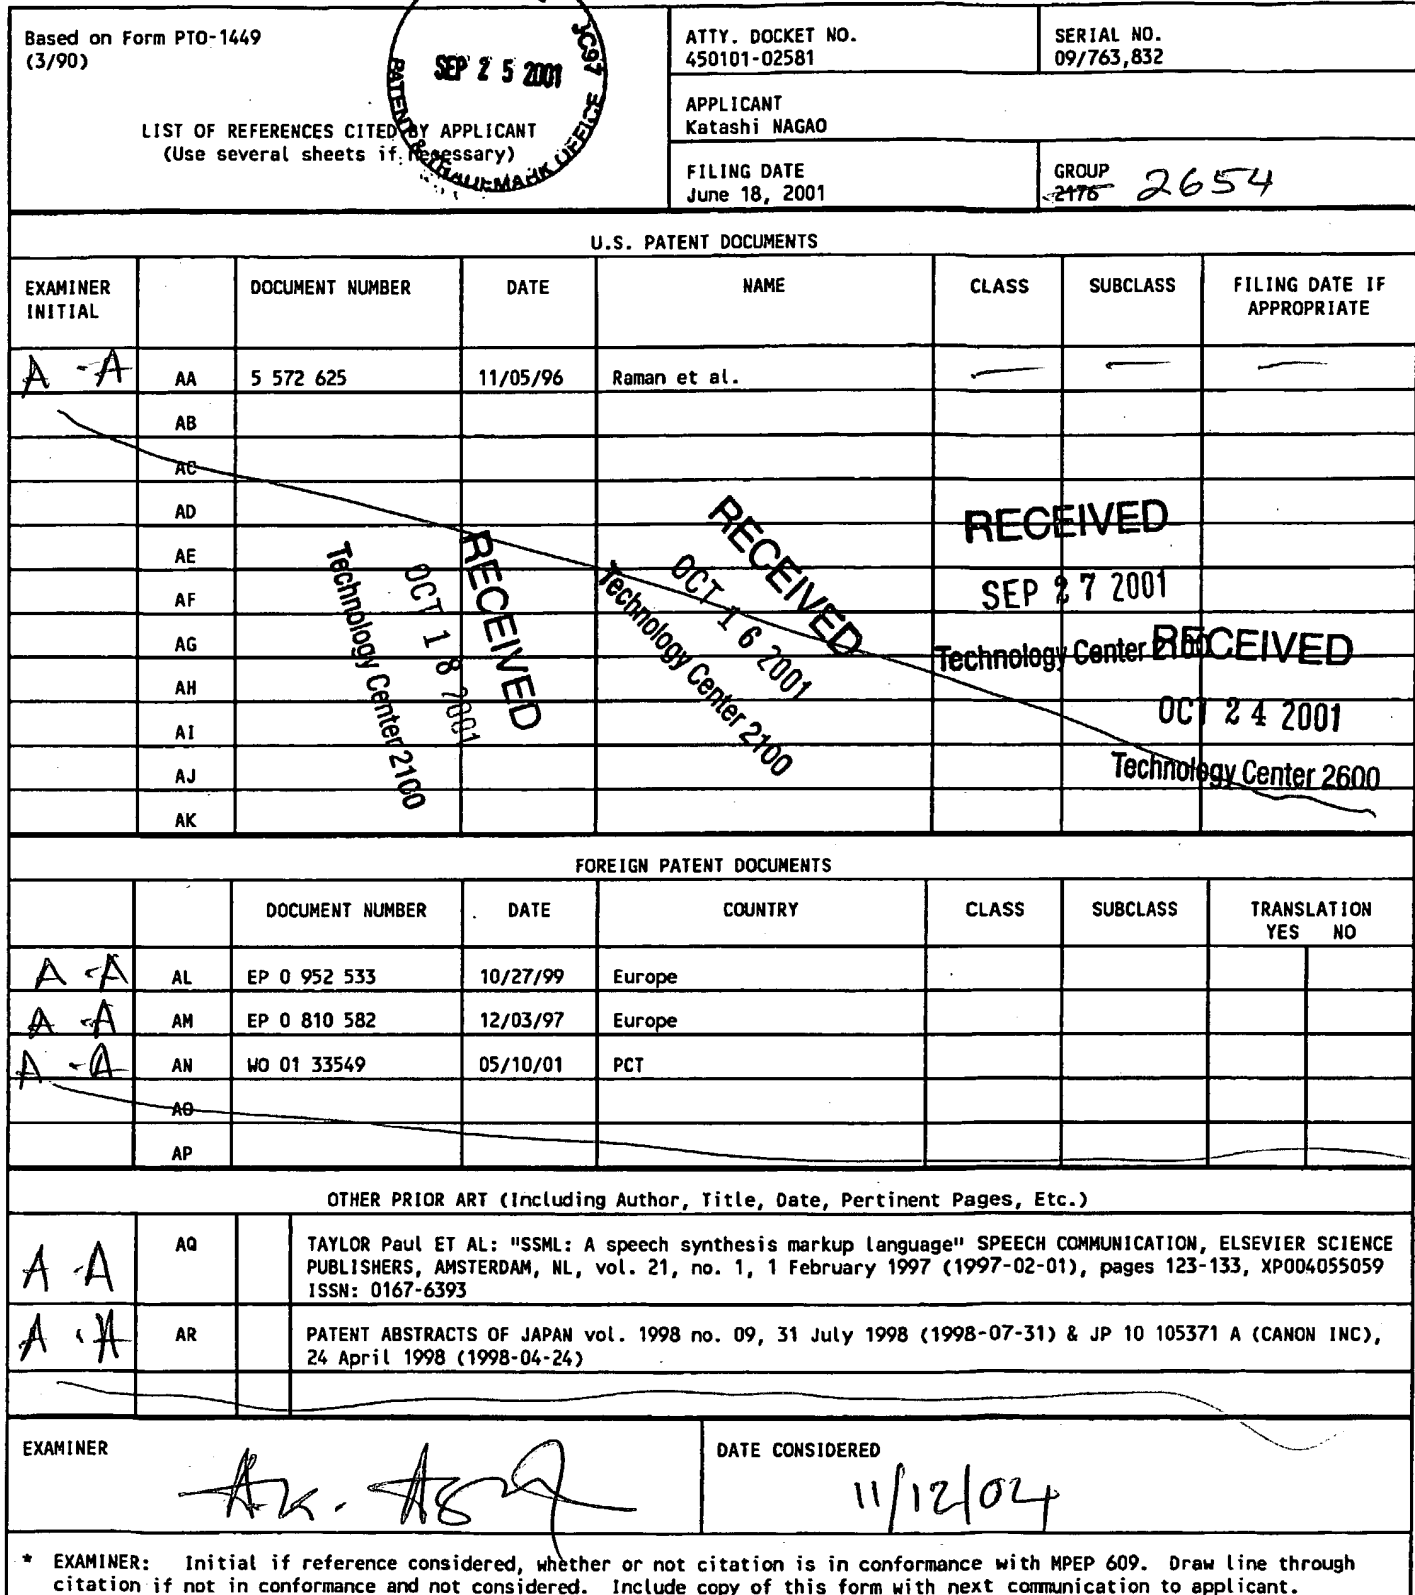 Based on Form PTO-1449
(3/90)
LIST OF REFERENCES CITED BY APPLICANT
(Use several sheets if necessary)
SEP 2 5 2001
JC97
PATENT & TRADEMARK OFFICE
ATTY. DOCKET NO.
450101-02581
SERIAL NO.
09/763,832
APPLICANT
Katashi NAGAO
FILING DATE
June 18, 2001
GROUP
2176 2654
U.S. PATENT DOCUMENTS
EXAMINER INITIAL DOCUMENT NUMBER DATE NAME CLASS SUBCLASS FILING DATE IF APPROPRIATE
A-A AA 5 572 625 11/05/96 Raman et al. — — —
AB
AC
AD
AE
AF
AG
AH
AI
AJ
AK
RECEIVED
OCT 1 8 2001
Technology Center 2100
RECEIVED
OCT 1 6 2001
Technology Center 2100
RECEIVED
SEP 2 7 2001
Technology Center 2100
RECEIVED
OCT 2 4 2001
Technology Center 2600
FOREIGN PATENT DOCUMENTS
DOCUMENT NUMBER DATE COUNTRY CLASS SUBCLASS TRANSLATION YES NO
A-A AL EP 0 952 533 10/27/99 Europe
A-A AM EP 0 810 582 12/03/97 Europe
A-A AN WO 01 33549 05/10/01 PCT
AO
AP
OTHER PRIOR ART (Including Author, Title, Date, Pertinent Pages, Etc.)
A-A AQ TAYLOR Paul ET AL: "SSML: A speech synthesis markup language" SPEECH COMMUNICATION, ELSEVIER SCIENCE
PUBLISHERS, AMSTERDAM, NL, vol. 21, no. 1, 1 February 1997 (1997-02-01), pages 123-133, XP004055059
ISSN: 0167-6393
A-A AR PATENT ABSTRACTS OF JAPAN vol. 1998 no. 09, 31 July 1998 (1998-07-31) & JP 10 105371 A (CANON INC),
24 April 1998 (1998-04-24)
EXAMINER
DATE CONSIDERED
11/12/04
* EXAMINER: Initial if reference considered, whether or not citation is in conformance with MPEP 609. Draw line through
citation if not in conformance and not considered. Include copy of this form with next communication to applicant.